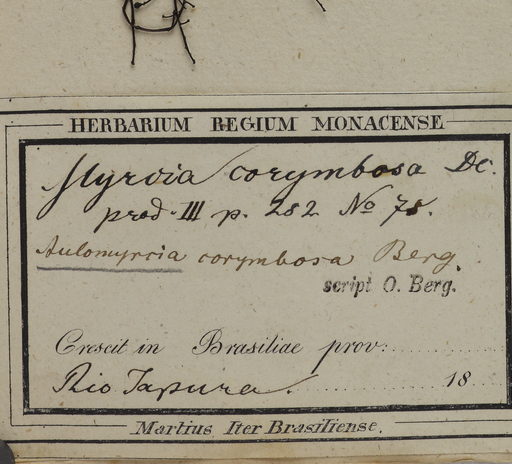 HERBARIUM REGIUM MONACENSE
Myrcia corymbosa DC.
prod. III p. 252 No 78.
Aulomyrcia corymbosa Berg.
script O. Berg.
Crescit in Brasiliae prov:
Rio Tapura. 18
Martius Iter Brasiliense.